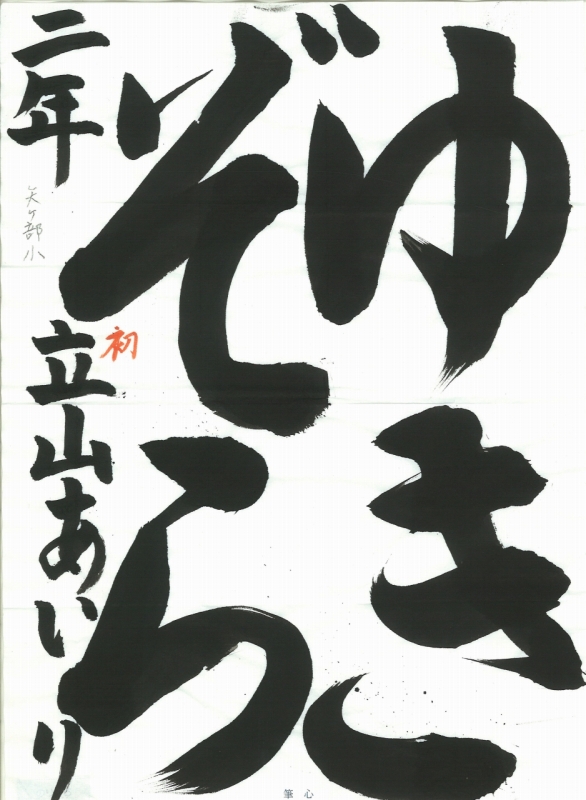 ゆき
ぞら
初
二年
矢ヶ部小
立山あいり
筆心